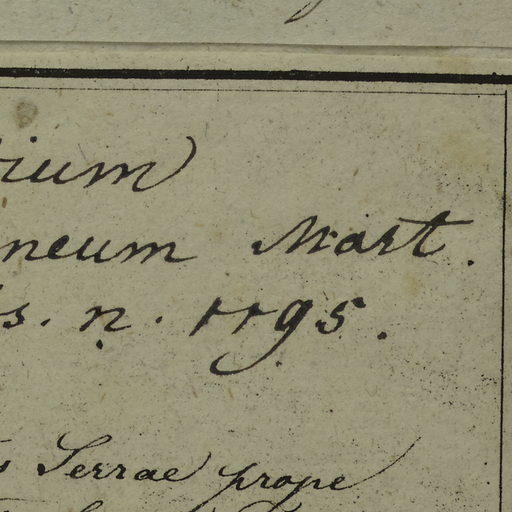 ium
neum Mart.
s. n. 1195.
s Serrae prope